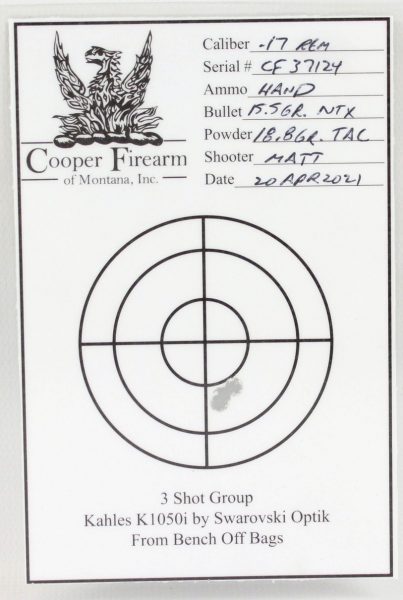 Caliber .17 REM
Serial # CF 37124
Ammo HAND
Bullet 15.5GR. NTX
Powder 18.8GR. TAC
Shooter MATT
Date 20 APR 2021
Cooper Firearm
of Montana, Inc.
3 Shot Group
Kahles K1050i by Swarovski Optik
From Bench Off Bags